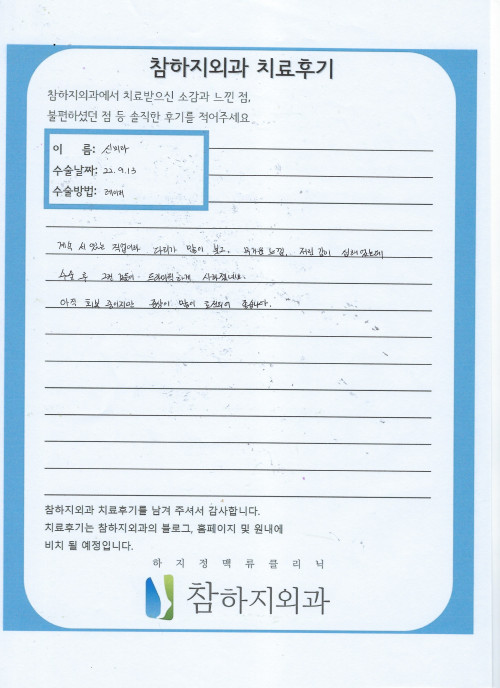 참하지외과 치료후기
참하지외과에서 치료받으신 소감과 느낀 점,
불편하셨던 점 등 솔직한 후기를 적어주세요
이 름:
수술날짜; 22.9.13
수술방법: 레이저
계속 서 있는 직업이라 다리가 많이 붓고, 무거운 느낌, 저린 감이 심했었는데
수술 후 그런 감들이 드라마틱하게 사라졌네요.
아직 회복 중이지만 증상이 많이 호전되어 좋습니다.
참하지외과 치료후기를 남겨 주셔서 감사합니다.
치료후기는 참하지외과의 블로그, 홈페이지 및 원내에
비치 될 예정입니다.
하지정맥류클리닉
참하지외과